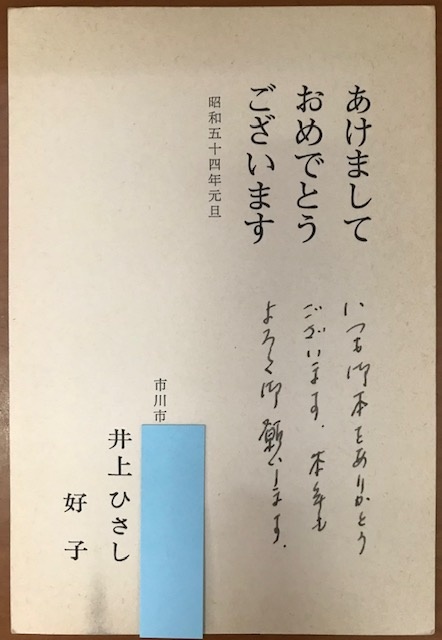 あけまして
おめでとう
ございます
いつも御本をありがとう
ございます。本年も
よろしく御願いします。
昭和五十四年元旦
市川市
井上ひさし
好子